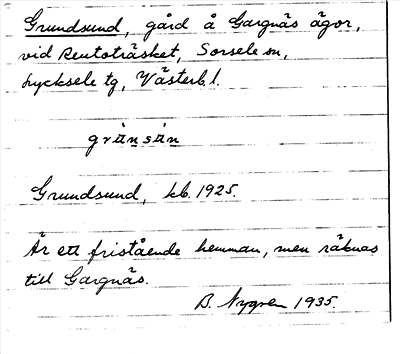 Grundsund, gård å Gargnäs ägor,
vid Rentoträsket, Sorsele sn,
Lycksele tg, Västerb. l.
Grundsund, kb. 1925.
Är ett fristående hemman, men räknas
till Gargnäs.
B. Nygren 1935.